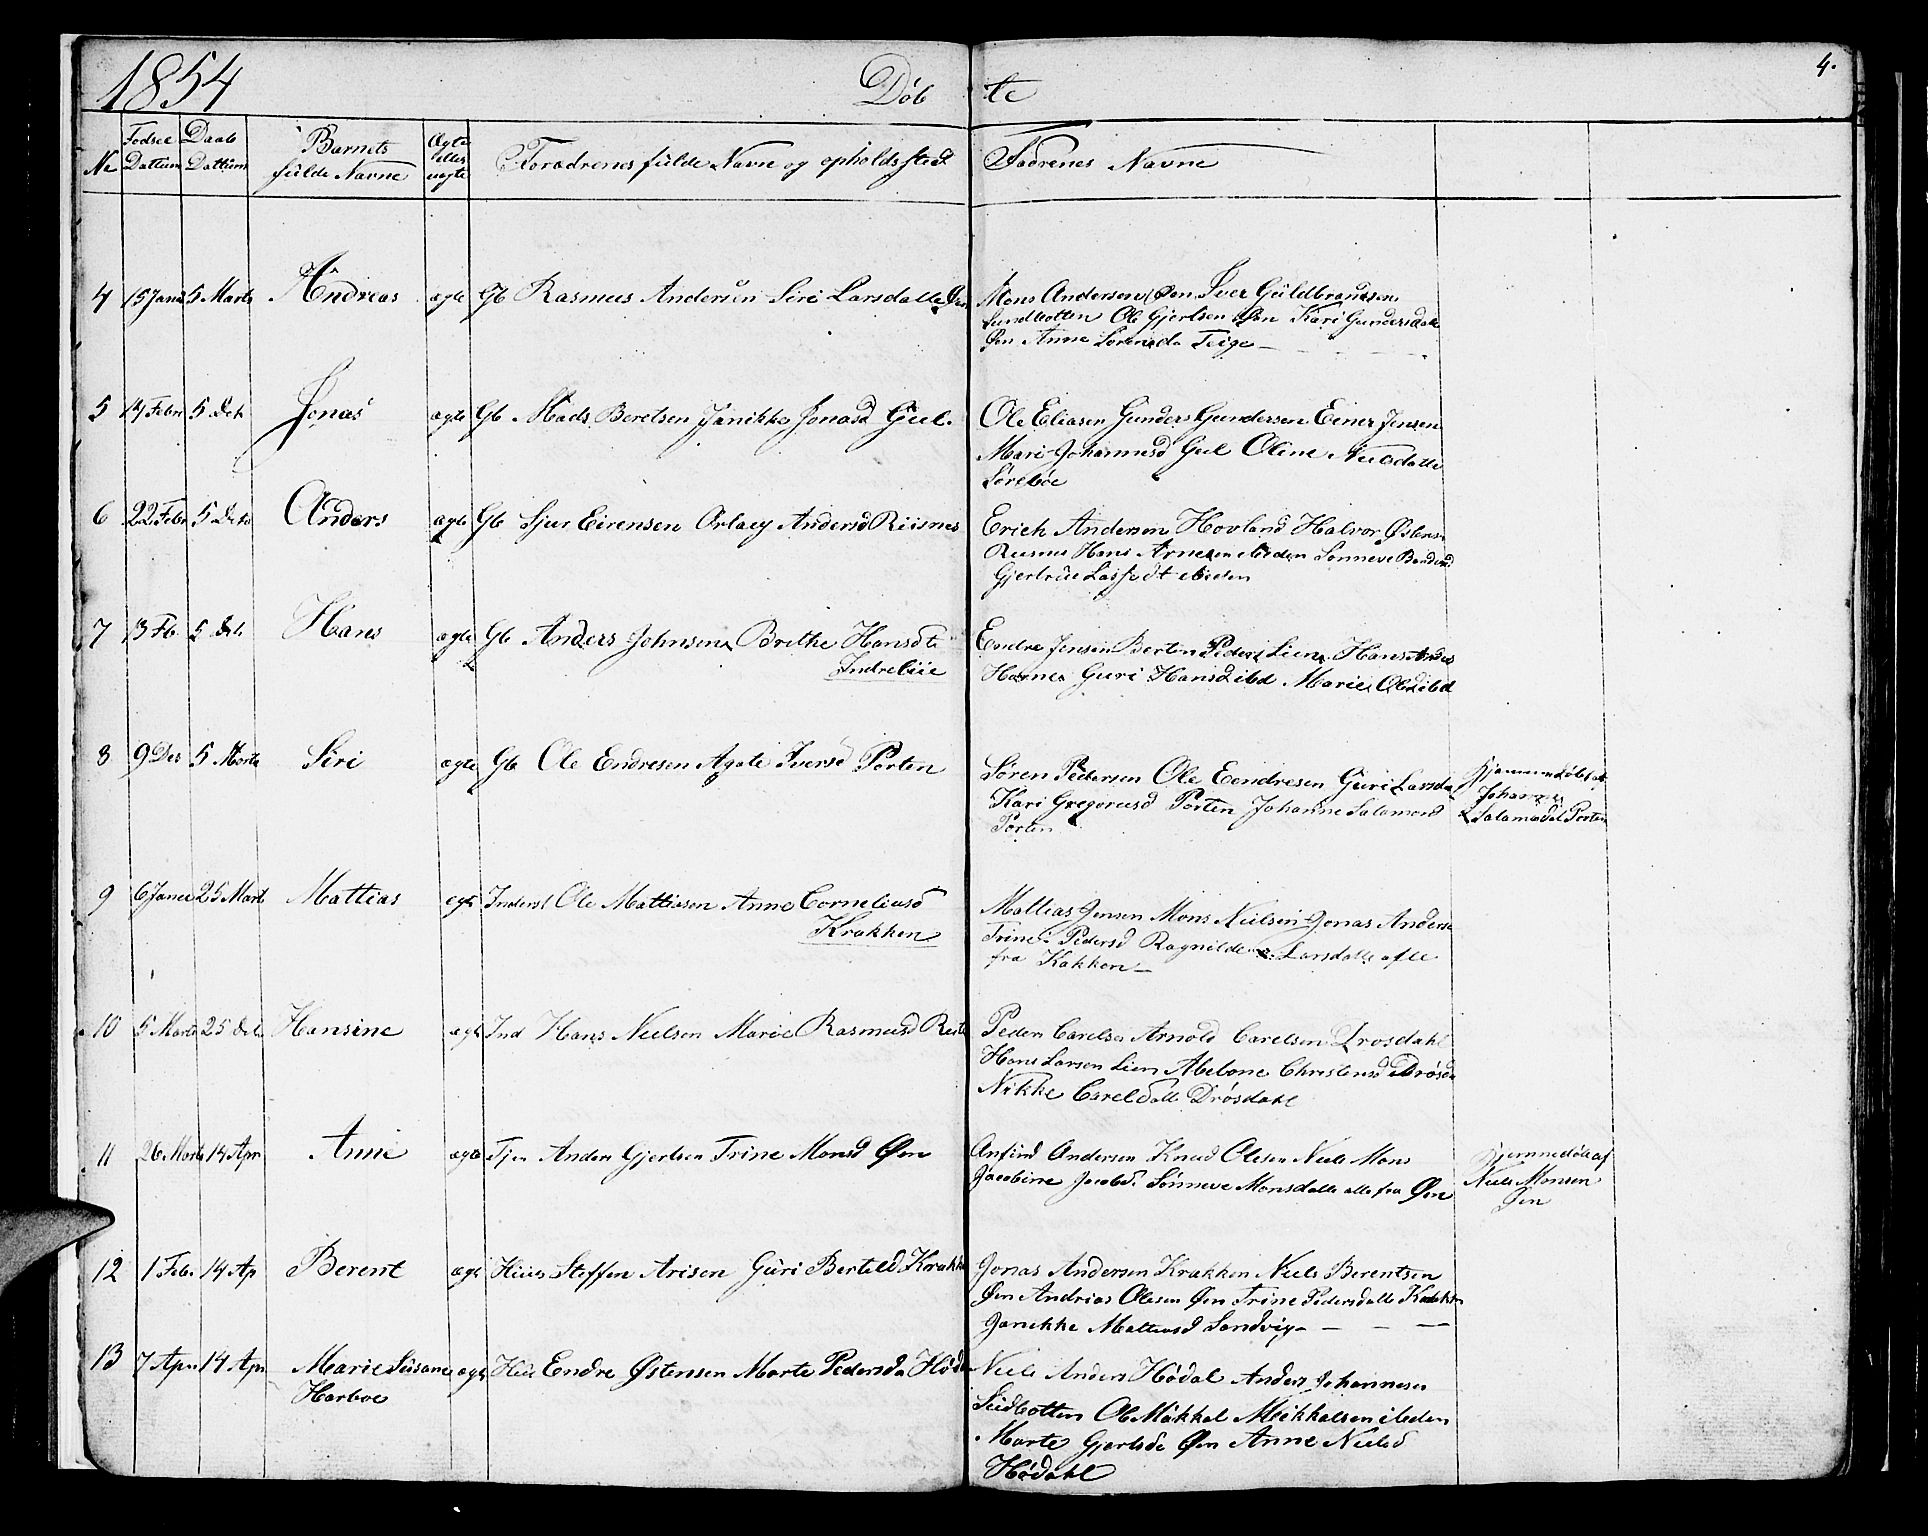 1854 Döb te 4.
Ne Fodsel Dattum Daab Dattum Barnets fulde Navne Ægte eller uægte Foradrenes fulde Navne og opholds sted Fadrenes Navne
4 15 Janu 5 Marts Andreas ægte Gb Rasmus Andersen Siri Larsdatte Øen
Mons Andersen Øen Iver Guldbrandsen
Sundbotten Ole Gjertsen Øen Kari Gundersdatte
Øen Anne Sorensda Teige
5 14 Febr 5 Dets Jonas ægte Gb Mads Beretsen Janikke Jonasd Gul.
Ole Eliasen Gunders Gundersen Einer Jensen
Mari Johannesd Gul Oline Nielsdatte
Söreböe
6 22 Febr 5 Dets Anders ægte Gb Sjur Eirensen Orlaug Andersd Riisnes
Erich Andersen Hovland Halvor Østens
Hans Arnesen ibiden Sonneve
Gjertrue ibiden
7 13 Fb 5 Dets Hans ægte Gb Anders Johnsen Brithe Hansdt
Indrebüe
Endre Jensen Berten Peders Lien Hans Andes
Guri Hansd ibd Marie Olsd ibd
8 9 Des 5 Marts Siri ægte Gb Ole Endresen Agate Iversd Porten
Søren Pedersen Ole Eendresen Guri Larsda
Kari Gregorusd Porten Johanne Salamons
Porten
Hjemmedöbt af
Johanne
Salamosdat Porten
9 6 Janu 25 Mart Mattias egte Inderst Ole Mattiasen Anne Corneliusd
Krakken
Mattias Jensen Mons Nielsen Jonas Anderse
Trine Pedersd Ragnilde Larsdatte alle
fra Kakken
10 5 Marts 25 Det Hansine ægte Ind Hans Nielsen Marie Rasmusd
Peder Carelsen Arnold Carelsen Drosdahl
Hans Larsen Lien Abelone Christensd Drösda
Nikke Careldatte Drösdahl
11 26 Marts 14 Apr Anne ægte Tjen Anders Gjertsen Trine Monsd Øen
Anfind Andersen Knud Olesen Niels Mons
Jacobine Jacobd. Sönneve Monsdatte alle fra Øen
Hjemmedöb af
Niels Monsen
Øen
12 1 Feb. 14 Ap Berent ægte Huus Steffen Arisen Guri Berteld Krakke
Jonas Andersen Krakken Niels Berentsen
Øen Andrias Olesen Øen Trine Pedersdatte Krakke
Janikke Matiasd Sandvig
13 7 Apr 14 Apr Marie Susane ægte Huus Endre Østensen Marte Pedersda Hödal
Harboe
Niels Anders Hödal Anders Johannesen
Sudbotten Ole Mikkel Mikkelsen ibeden
Marte Gjertsda Øen Anne Nielsd
Hödahl